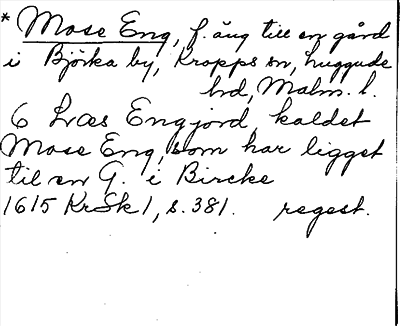 * Mose Eng, f. äng till en gård
i Björka by, Kropps sn, Luggude
hd, Malm. l.
6 Læs Engjord kaldet
Mose Eng, som har ligget
til en G. i Bircke
1615 KrSk 1, s. 381. regest.